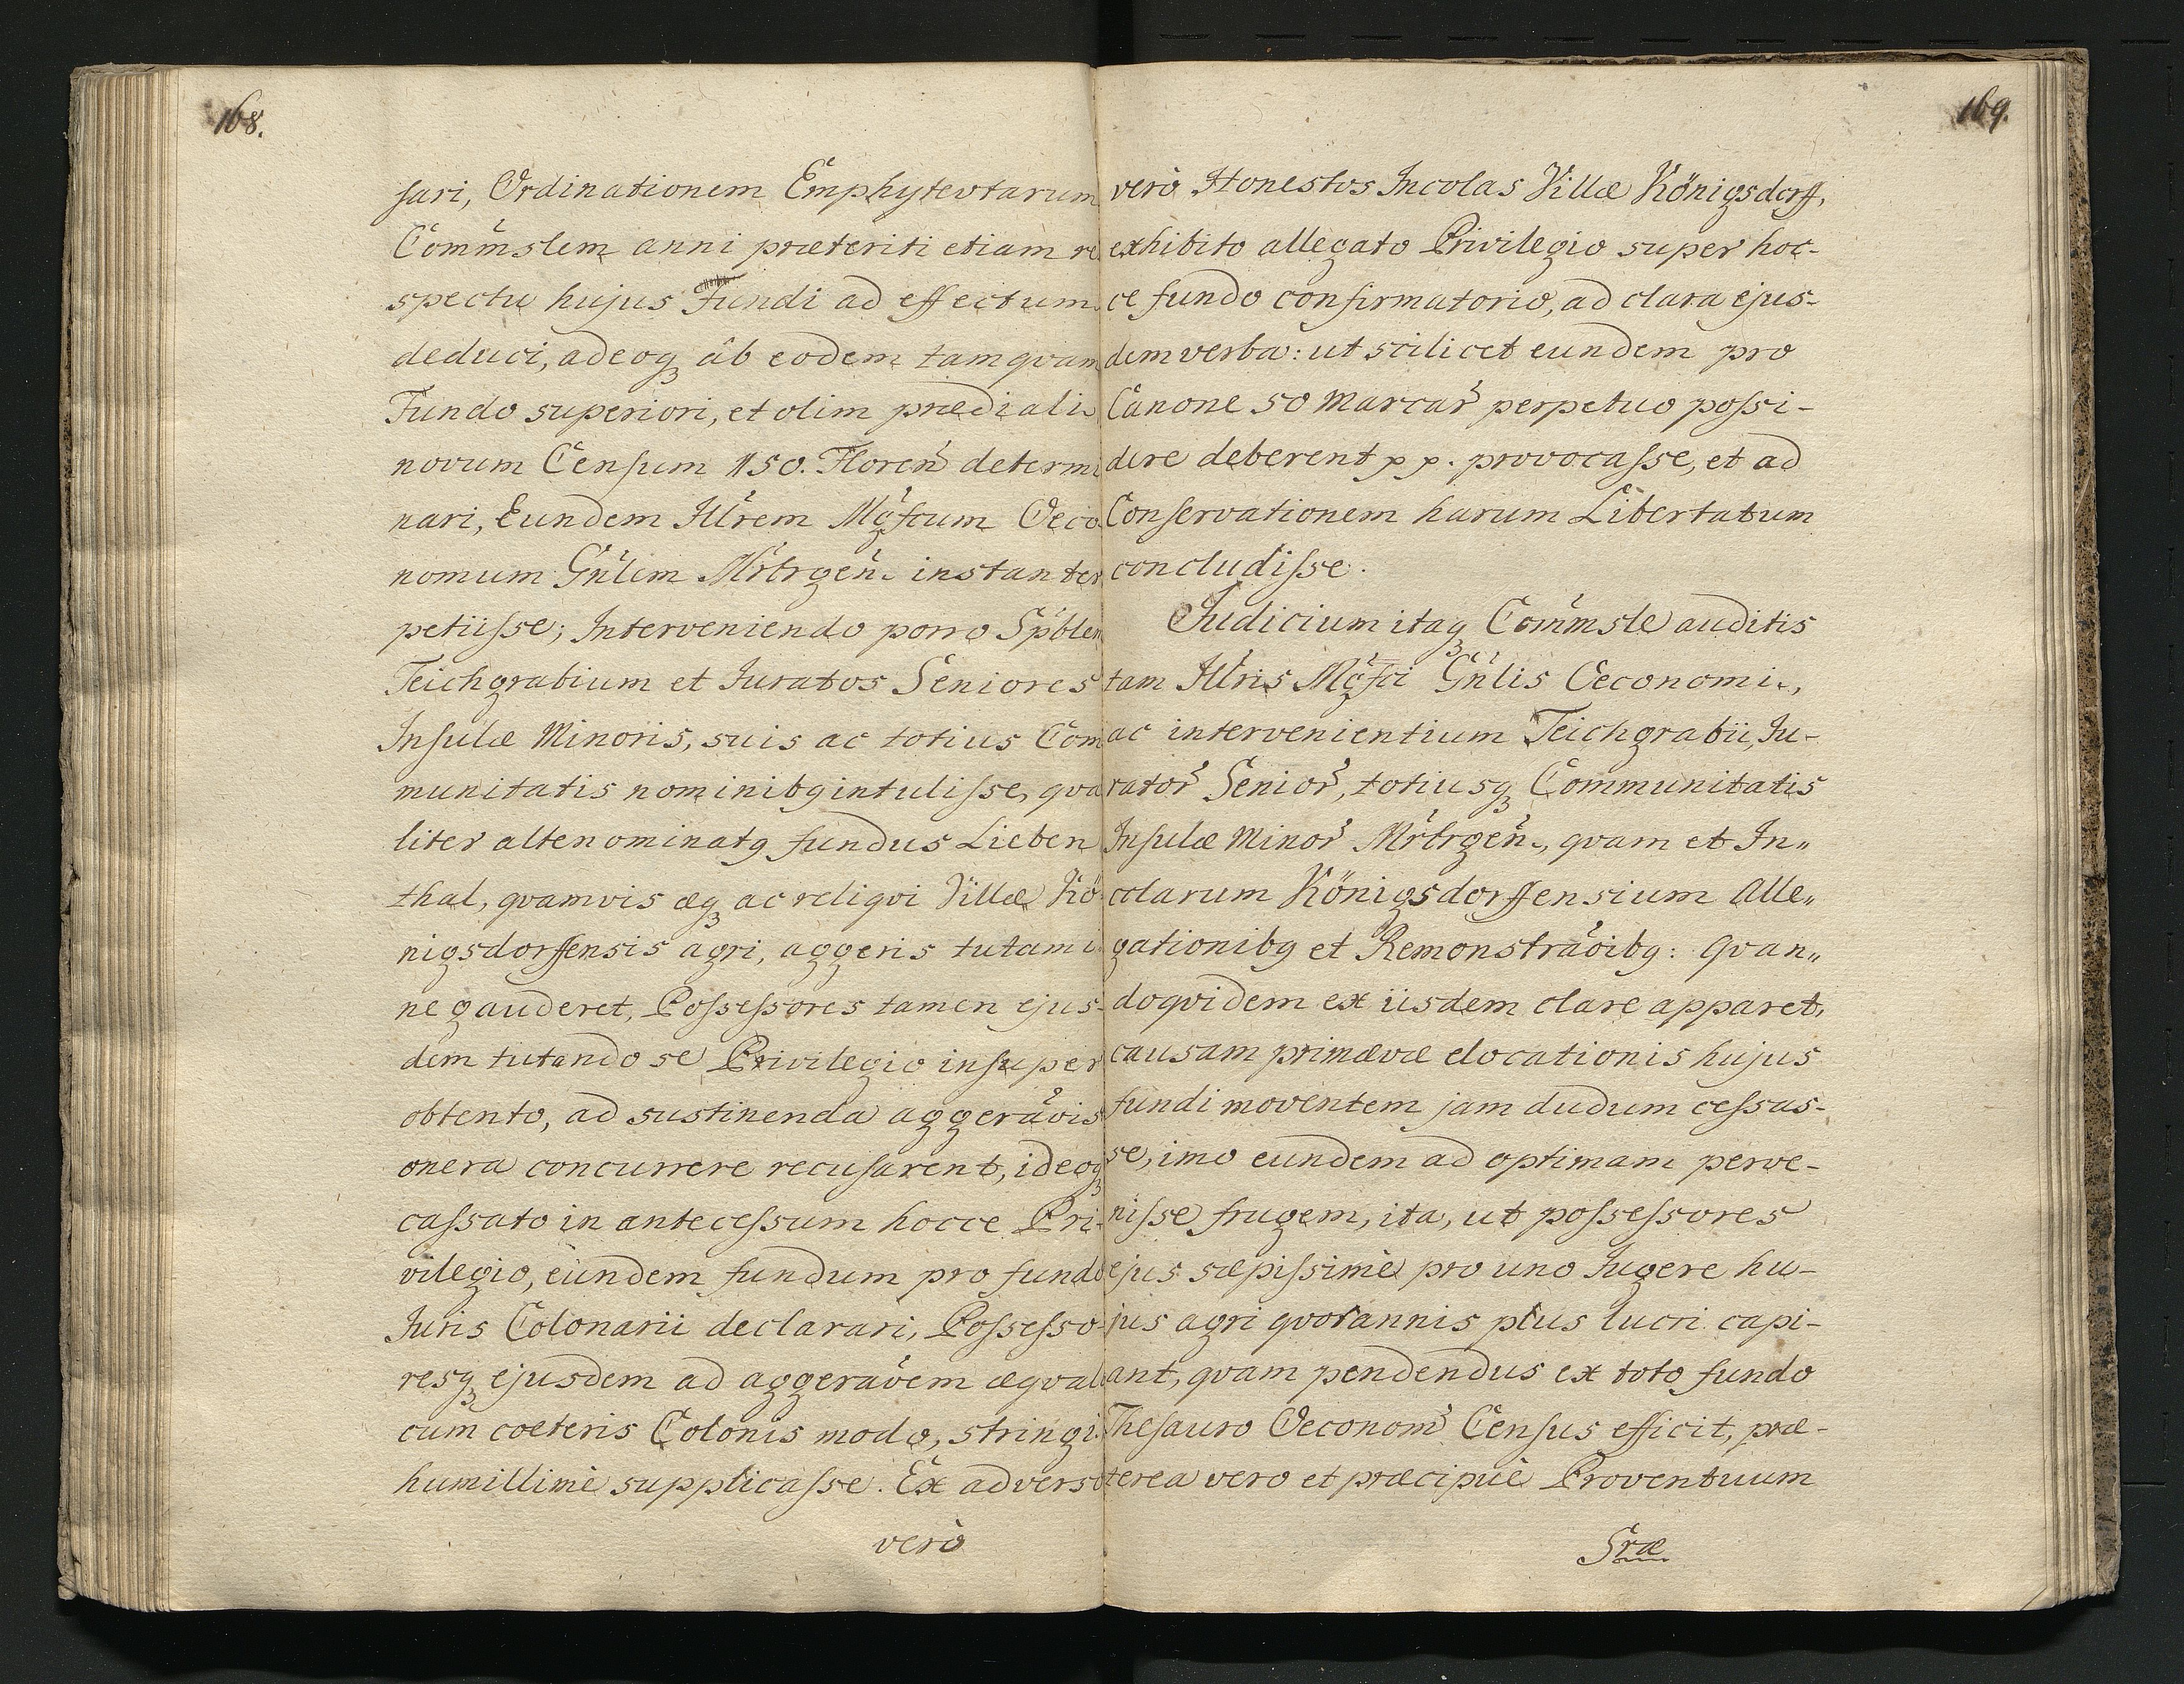 168.
sari, Ordinationem Emphytevtarum
Com̃mslem anni præteriti etiam re
spectu hujus Fundi ad effectum
deduci, adeoqꝫ ab eodem tamqvam
Fundo superiori, et olim prædiali
novum Censum 150. Floren̉ determi
nari, Eundem Illr̃em Mgfcum Oeco
nomum Gñlem Mrbrgen̉. instanter
petiisse; Interveniendo porro Spblem
Teichgrabium et Juratos Seniores
Insulæ Minoris, suis ac totius Com
munitatis nominibꝰ intulisse, qva
liter altenominatꝰ fundus Lieben
thal, qvamvis æqꝫ ac reliqvi Villæ Kö
nigsdorffensis agri, aggeris tutami
ne gauderet, Possessores tamen ejus-
dem tutando se Privilegio insuper
obtento, ad sustinenda aggera͠ois
onera concurrere recusarent, ideoqꝫ
cassato in antecessum hocce Pri-
vilegio, eundem fundum pro fundo
Juris Colonarii declarari, Possesso-
resqꝫ ejusdem ad aggera͠oem æqvali
cum coeteris Colonis modo, stringi
humillimè supplicasse. Ex adverso
verò
169.
verò Honestos Incolas Villæ Königsdorff,
exhibito allegato Privilegio super hoc-
ce fundo confirmatorio, ad clara ejus-
dem verba: ut scilicet eundem pro
Canone 50 Marcar̉ perpetuo possi-
dere deberent pp. provocasse, et ad
Conservationem harum Libertatum
concludisse.
Judicium itaqꝫ Com̃msle auditis
tam Illr̃is Mgfci Gñlis Oeconomi,
ac intervenientium Teichgrabii, Ju-
rator̉ Senior̉, totiusqꝫ Communitatis
Insulæ Minor̉ Mrbrgen̉., qvam et In„
colarum Königsdorffensium Alle„
gationibꝰ et Remonstra͠oibꝰ: Qvan„
doqvidem ex iisdem clare apparet,
causam primævæ elocationis hujus
fundi moventem jam dudum cessas-
se, imo eundem ad optimam perve-
nisse frugem, ita, ut possessores
ejus sæpissimè pro uno Jugere hu-
jus agri qvotannis plus lucri capi-
ant, qvam pendendus ex toto fundo
Thesauro Oeconom̉ Census efficit, præ-
terea vero et præcipuè Proventuum
Sræ